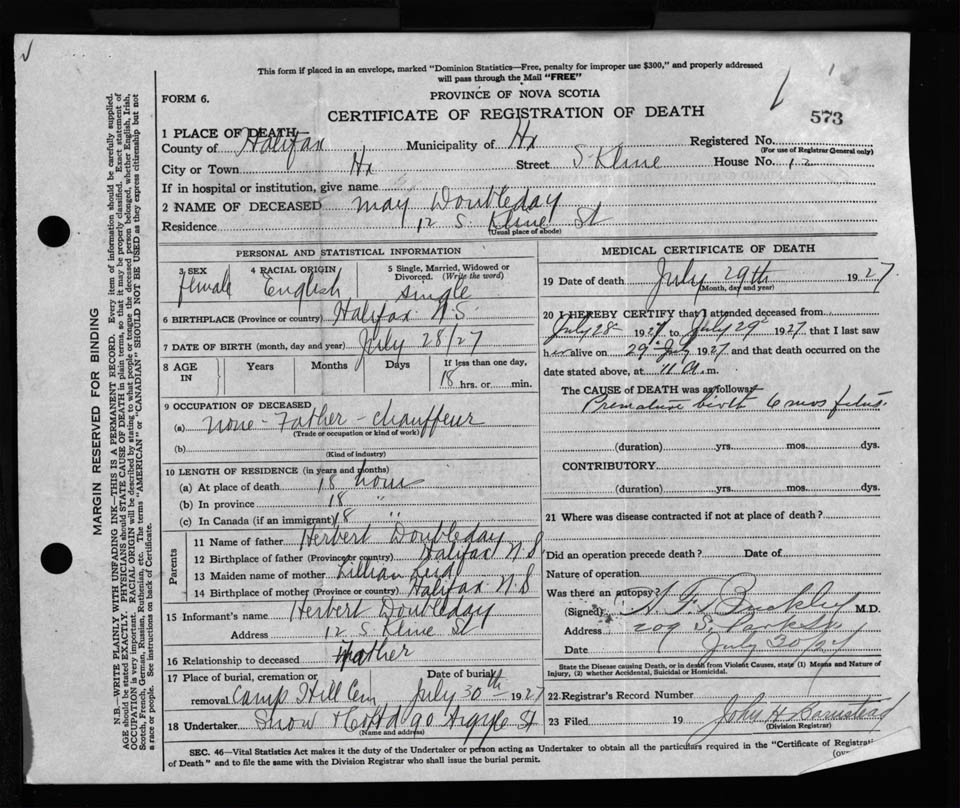 This form if placed in an envelope, marked "Dominion Statistics—Free, penalty for improper use $300," and properly addressed
will pass through the Mail "FREE"
FORM 6.
PROVINCE OF NOVA SCOTIA
CERTIFICATE OF REGISTRATION OF DEATH
573
1 PLACE OF DEATH—
County of Halifax Municipality of Hx Registered No.
(For use of Registrar General only)
City or Town Hx Street S Kline House No. 12
If in hospital or institution, give name
2 NAME OF DECEASED May Doubleday
Residence 12 S. Kline St
(Usual place of abode)
PERSONAL AND STATISTICAL INFORMATION
3 SEX 4 RACIAL ORIGIN 5 Single, Married, Widowed or
Divorced. (Write the word)
female English single
6 BIRTHPLACE (Province or country) Halifax N.S
7 DATE OF BIRTH (month, day and year) July 28/27
8 AGE IN Years Months Days If less than one day,
18 hrs. or min.
9 OCCUPATION OF DECEASED
(a) none - Father - Chauffeur
(Trade or occupation or kind of work)
(b)
(Kind of industry)
10 LENGTH OF RESIDENCE (in years and months)
(a) At place of death 18 hours
(b) In province 18 "
(c) In Canada (if an immigrant) 18 "
Parents
11 Name of father Herbert Doubleday
12 Birthplace of father (Province or country) Halifax N.S.
13 Maiden name of mother Lillian
14 Birthplace of mother (Province or country) Halifax N S
15 Informant's name Herbert Doubleday
Address 12 S Kline St
16 Relationship to deceased Father
17 Place of burial, cremation or Date of burial
removal Camp Hill Cem July 30th 1927
18 Undertaker Snow & Co Ltd 90 Argyle St
(Name and address)
MEDICAL CERTIFICATE OF DEATH
19 Date of death July 29th 1927
(Month, day and year)
20 I HEREBY CERTIFY that I attended deceased from
July 28 1927, to July 29 1927, that I last saw
her alive on 29 July 1927 and that death occurred on the
date stated above, at 11 a. m.
The CAUSE of DEATH was as follows:
Premature birth 6 mos fetus.
(duration) yrs. mos. dys.
CONTRIBUTORY
(duration) yrs. mos. dys.
21 Where was disease contracted if not at place of death?
Did an operation precede death? Date of
Nature of operation
Was there an autopsy?
(Signed) Buckley M.D.
Address 209 S. Park St.
Date July 30/27
State the Disease causing Death, or in death from Violent Causes, state (1) Means and Nature of
Injury, (2) whether Accidental, Suicidal or Homicidal.
22 Registrar's Record Number
23 Filed 19 John H Barnstead
(Division Registrar)
SEC. 46—Vital Statistics Act makes it the duty of the Undertaker or person acting as Undertaker to obtain all the particulars required in the "Certificate of Registrati
of Death" and to file the same with the Division Registrar who shall issue the burial permit.
(ov
MARGIN RESERVED FOR BINDING
N.B.—WRITE PLAINLY WITH UNFADING INK—THIS IS A PERMANENT RECORD. Every item of information should be carefully supplied.
AGE should be stated EXACTLY. PHYSICIANS should STATE CAUSE OF DEATH in plain terms, so that it may be properly classified. Exact statement of
OCCUPATION is very important. RACIAL ORIGIN will be described by stating to what people or tongue the deceased person belonged, whether English, Irish,
Scotch, French, German, Russian, Ruthenian, etc. The terms "AMERICAN" or "CANADIAN" SHOULD NOT BE USED as they express citizenship but not
a race or people. See instructions on back of Certificate.